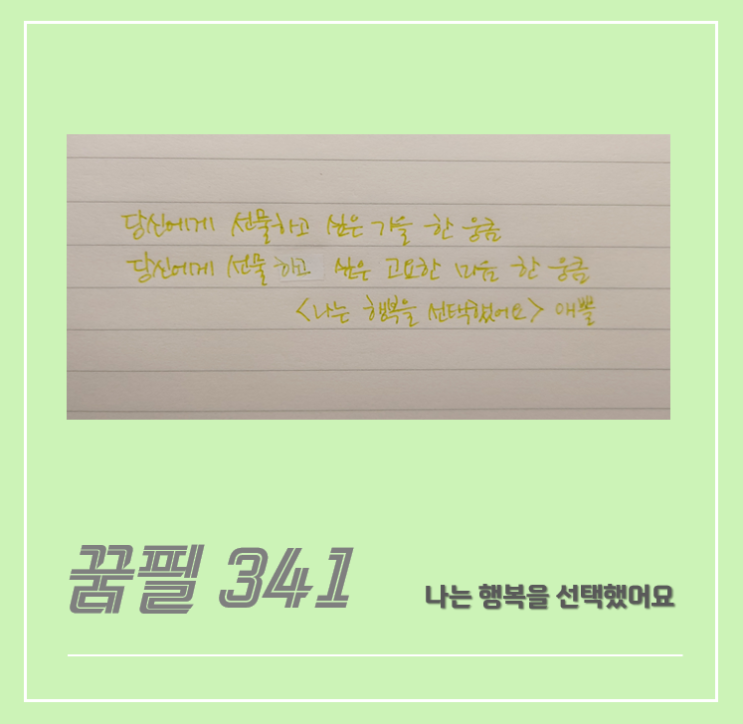 당신에게 선물하고 싶은 가을 한 움큼
당신에게 선물하고 싶은 고요한 마음 한 움큼
<나는 행복을 선택했어요> 애뽈
꿈필 341
나는 행복을 선택했어요